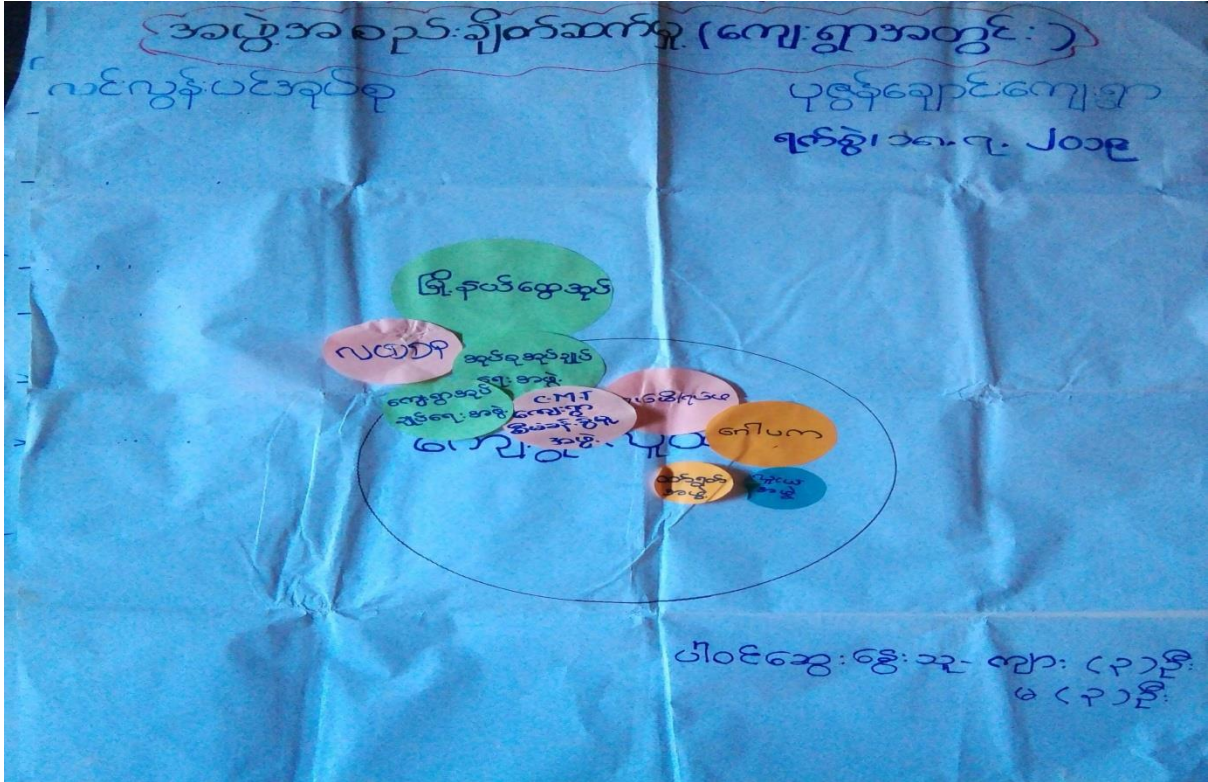 အဖွဲ့အစည်းချိတ်ဆက်မှု (ကျေးရွာအတွင်း)
လင်းလွန်းပင်အုပ်စု
ပုဇွန်ချောင်းကျေးရွာ
ရက်စွဲ၊ ၁၈.၇.၂၀၁၉
မြို့နယ်ထွေအုပ်
လယ်ဝန်
အုပ်စုအုပ်ချုပ်
ရေးအဖွဲ့
ကျေးရွာအုပ်
ချုပ်ရေးအဖွဲ့
C.M.T
ကျေးရွာ
စီမံခန့်ခွဲမှု
အဖွဲ့
ဂေါပက
အဖွဲ့
အဖွဲ့
ပါဝင်ဆွေးနွေးသူ - ကျား (၃)ဦး
မ (၃)ဦး